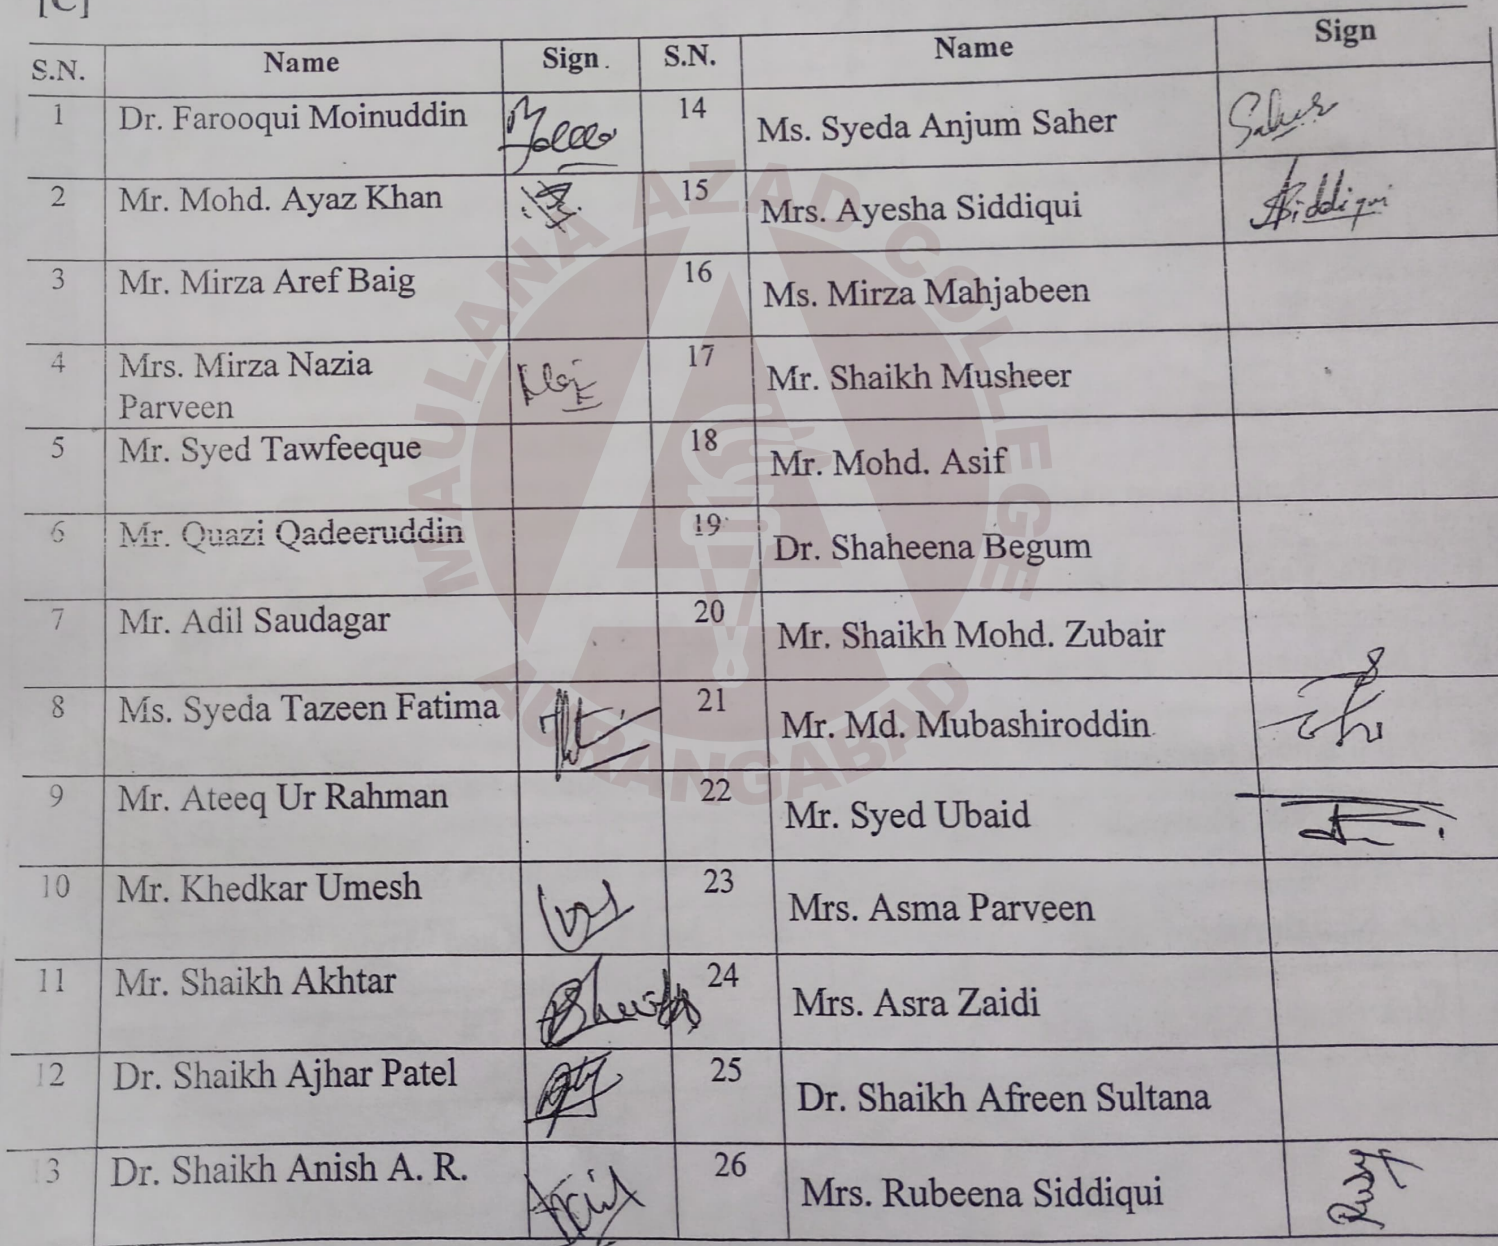 [C]
S.N. Name Sign. S.N. Name Sign
1 Dr. Farooqui Moinuddin 14 Ms. Syeda Anjum Saher Saher
2 Mr. Mohd. Ayaz Khan 15 Mrs. Ayesha Siddiqui ASiddiqui
3 Mr. Mirza Aref Baig 16 Ms. Mirza Mahjabeen
4 Mrs. Mirza Nazia 17 Mr. Shaikh Musheer
Parveen
5 Mr. Syed Tawfeeque 18 Mr. Mohd. Asif
6 Mr. Quazi Qadeeruddin 19 Dr. Shaheena Begum
7 Mr. Adil Saudagar 20 Mr. Shaikh Mohd. Zubair
8 Ms. Syeda Tazeen Fatima 21 Mr. Md. Mubashiroddin
9 Mr. Ateeq Ur Rahman 22 Mr. Syed Ubaid
10 Mr. Khedkar Umesh 23 Mrs. Asma Parveen
11 Mr. Shaikh Akhtar 24 Mrs. Asra Zaidi
12 Dr. Shaikh Ajhar Patel 25 Dr. Shaikh Afreen Sultana
13 Dr. Shaikh Anish A. R. 26 Mrs. Rubeena Siddiqui
MAULANA AZAD COLLEGE
AURANGABAD